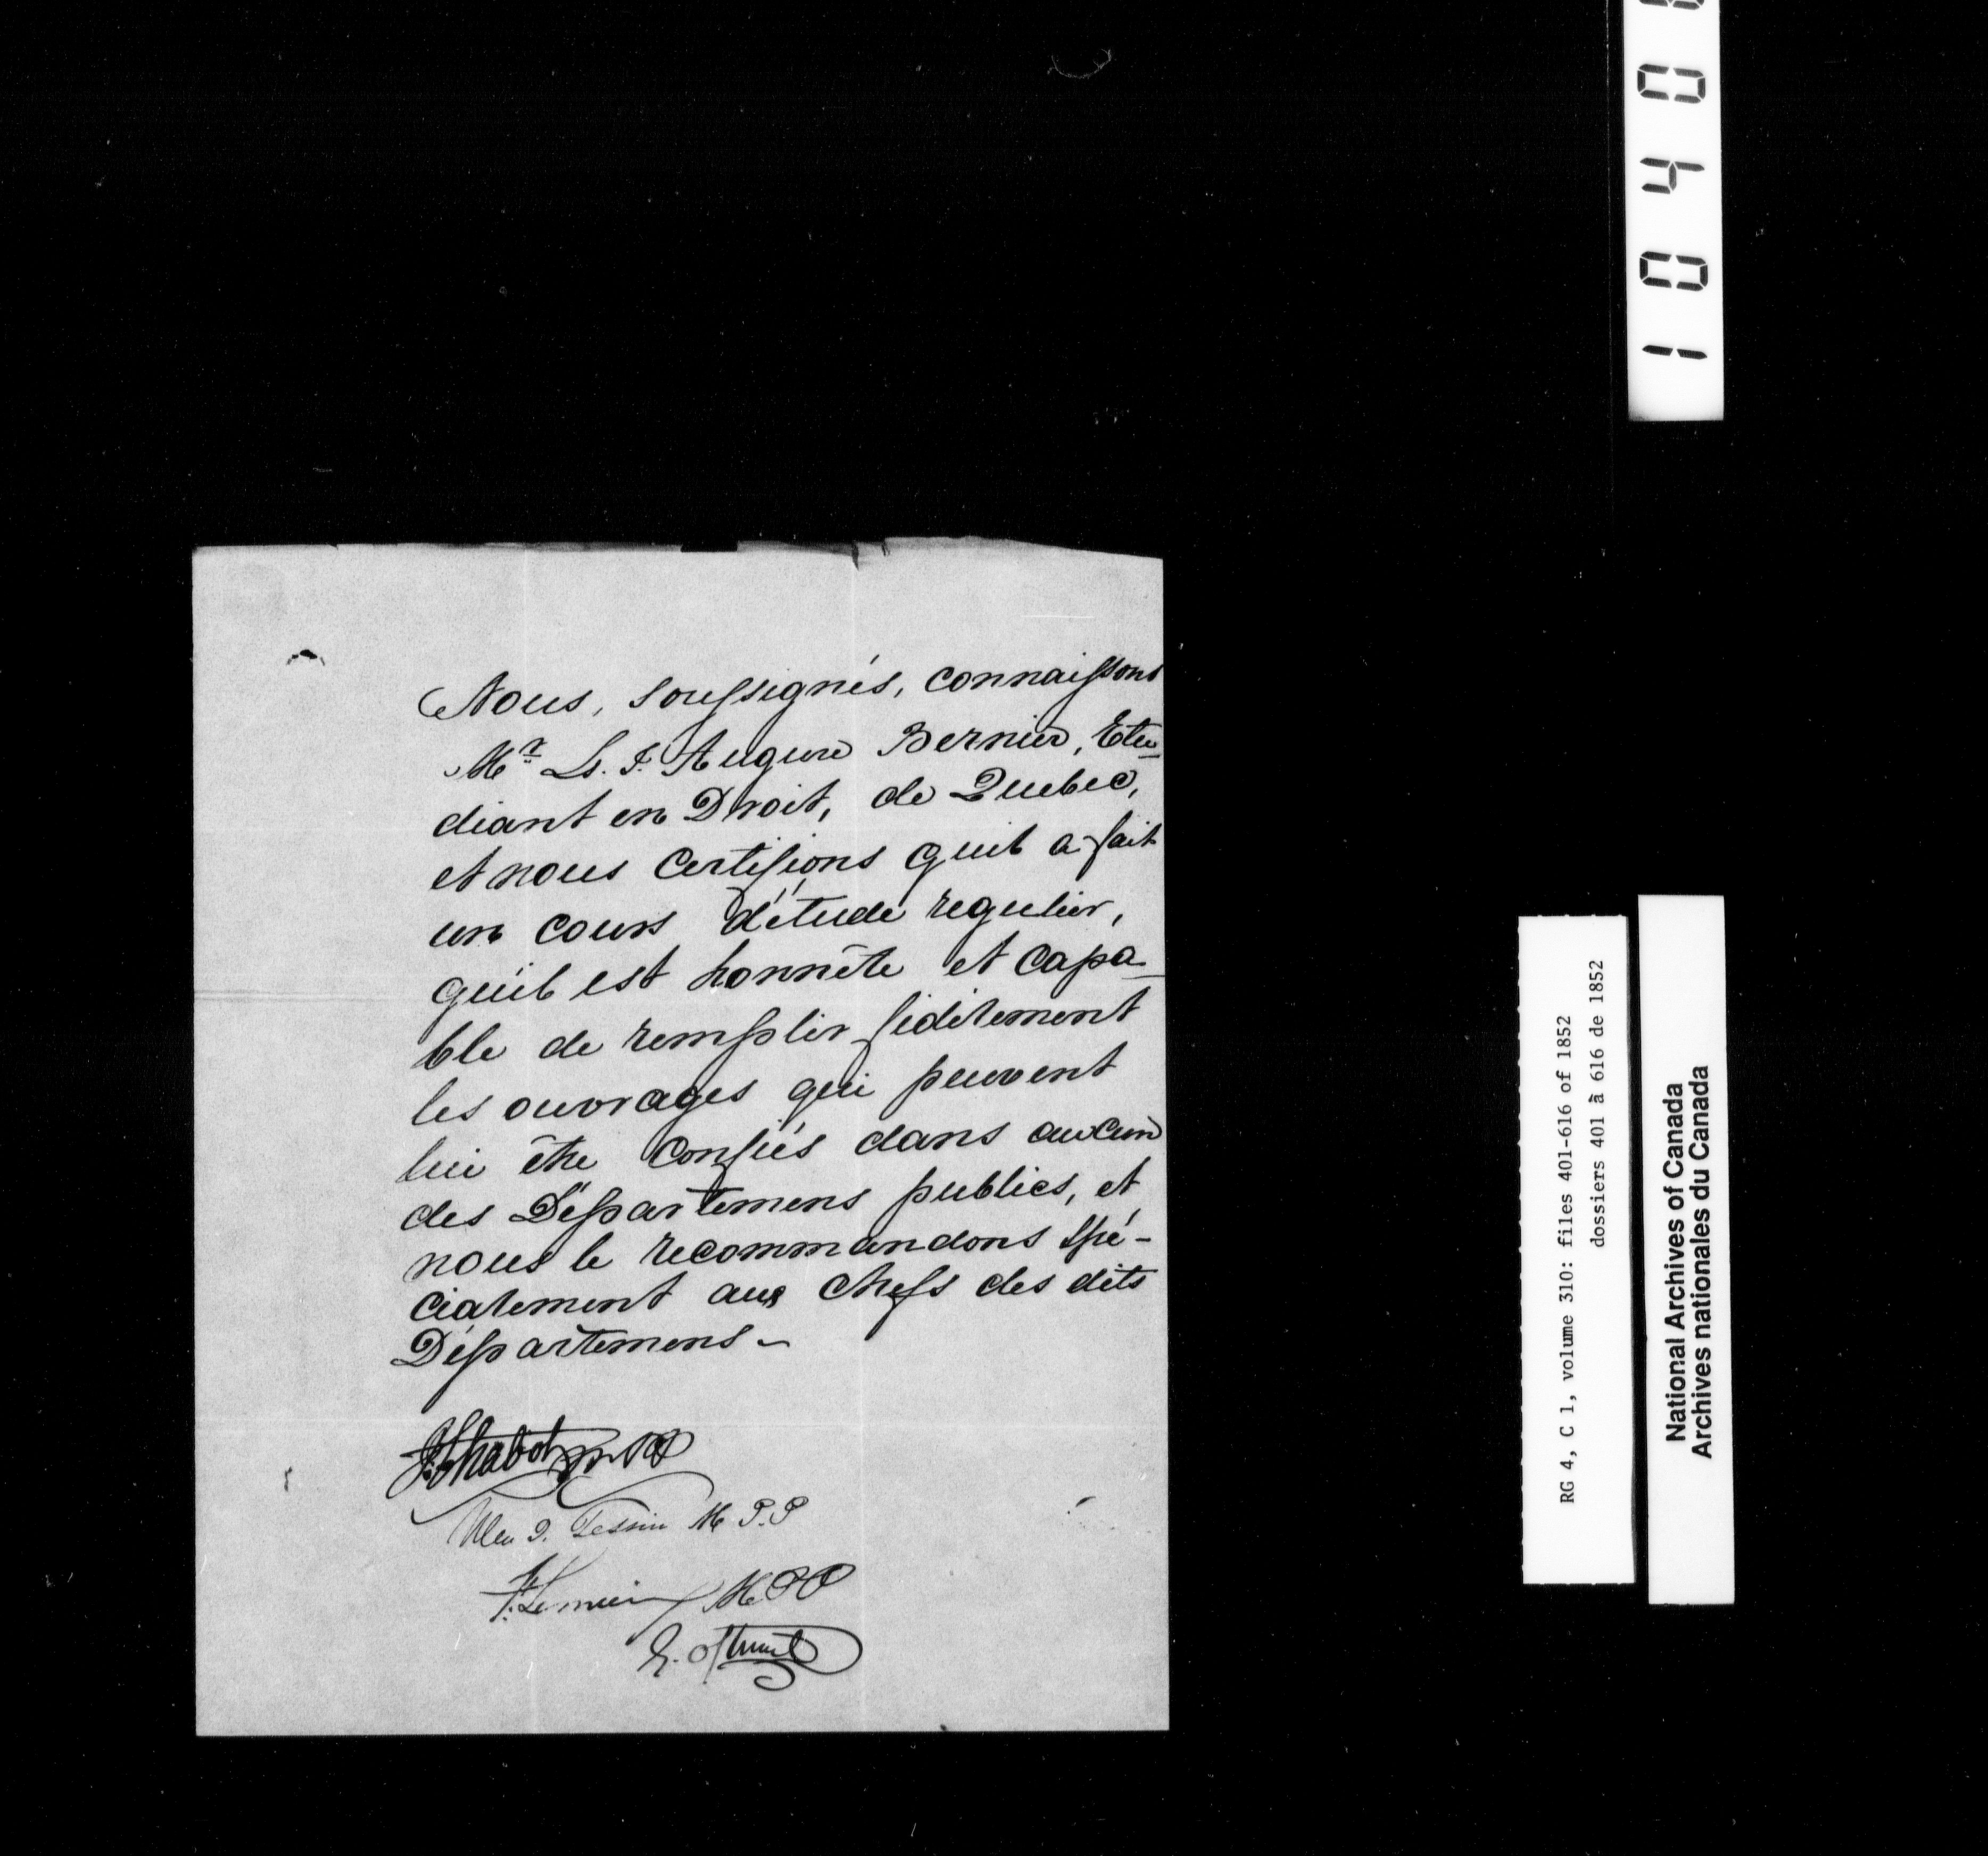 Nous, soussignés, connaissons
Mr Ls. F. Augure Bernier, Etu-
diant en Droit, de Quebec,
et nous certifions qu'il a fait
un cours d'étude regulier,
qu'il est honnête et capa-
ble de remplir fidèlement
les ouvrages qui peuvent
lui être confiés dans aucun
des Départemens publics, et
nous le recommandons spé-
cialement aux chefs des dits
Départemens -
J. Chabot
Tessier M P.P
F. Lemieux MPP
RG 4, C 1, volume 310: files 401-616 of 1852
dossiers 401 à 616 de 1852
National Archives of Canada
Archives nationales du Canada
1 0 4 0